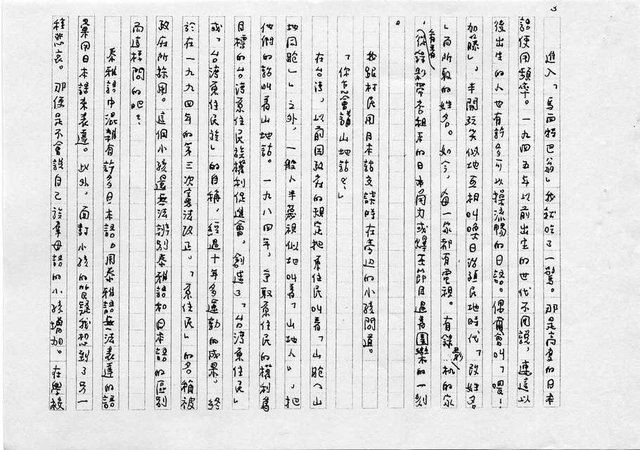 3
進入「馬西特巴翁」我就吃了一驚。那是高度的日本
語使用頻率。一九四五年以前出生的世代不用說，連這以
後出生的人也有許多可以操流暢的日語。偶爾會叫「喂！
加藤」，半開玩笑似地互相叫喚日治殖民地時代「改姓名
」而所取的姓名。如今，每一家都有電視。有錄影機的家
看著日本角力或爆笑節目過著團欒的一刻
。
我跟村民用日本話交談時在旁邊的小孩問道。
「你怎會講山地話？」
在台灣，以前因政府的規定把原住民叫著「山胞（山
地同胞）」之外，一般人半蔑視似地叫著「山地人」，把
他們的話叫著山地話。一九八四年，爭取原住民的權利為
目標的台灣原住民族權利促進會，創造了「台灣原住民」
或「台灣原住民族」的自稱，經過十年多運動的成果，終
於在一九九四年的第三次憲法改正，「原住民」的名稱被
政府所採用。這個小孩還無法辨別泰雅語和日本語的區別
而這樣問的吧？
泰雅語中混雜有許多日本語。用泰雅語無法表達的語
彙用日本語來表達。此外，面對小孩的質疑我想到了另一
種悲哀。那便是不會說自己族群母語的小孩增加。在學校